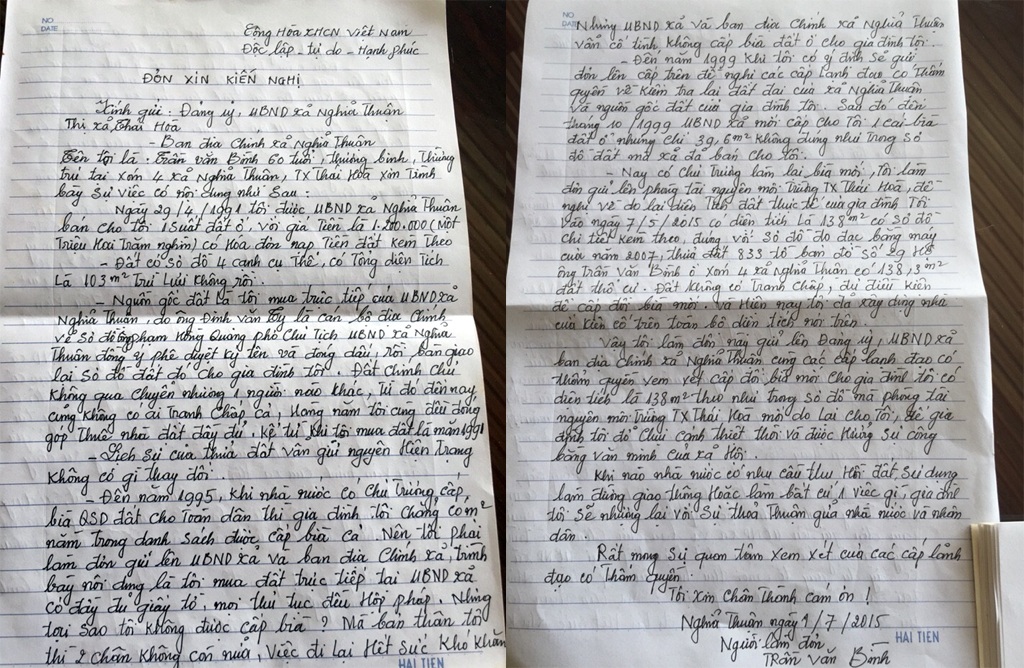 NO
DATE
Cộng Hòa XHCN Việt Nam
Độc lập - tự do - Hạnh phúc
ĐƠN XIN KIẾN NGHỊ
Kính gửi: Đảng ủy, UBND xã Nghĩa Thuận
Thị xã Thái Hòa
- Ban địa chính xã Nghĩa Thuận
Tên tôi là: Trần Văn Bính 60 tuổi, thương binh, Thường
trú tại xóm 4 xã Nghĩa Thuận, TX Thái Hòa xin Trình
bày sự việc có nội dung như sau:
Ngày 29/4/1991 tôi được UBND xã Nghĩa Thuận
bán cho tôi 1 suất đất ở, với giá Tiền là 1.200.000 (Một
Triệu Hai Trăm nghìn) có Hóa đơn nạp Tiền đất kèm Theo
- Đất có sơ đồ 4 cạnh cụ Thể, có Tổng diện Tích
là 103m² trừ lưu không rồi.
- Nguồn gốc đất là tôi mua trực tiếp của UBND xã
Nghĩa Thuận, do ông Đinh Văn Tỵ là cán bộ địa chính
vẽ sơ đồ ông phạm Hồng Quảng phó Chủ Tịch UBND xã Nghĩa
Thuận đồng ý phê duyệt ký tên và đóng dấu, rồi bàn giao
lại sơ đồ đất đó cho gia đình tôi. Đất chính chủ
không qua chuyển nhượng 1 người nào khác, từ đó đến nay,
cũng không có ai Tranh chấp cả, Hàng năm tôi cũng đều đóng
góp Thuế nhà đất đầy đủ. kể từ khi tôi mua đất là măn 1991
- Lịch sử của thửa đất vẫn giữ nguyên Hiện Trạng
không có gì thay đổi.
- Đến năm 1995, khi nhà nước có chủ Trương cấp,
bìa QSD đất cho toàn dân thì gia đình tôi chẳng có m²
nằm trong danh sách được cấp bìa cả. Nên tôi phải
làm đơn gửi lên UBND xã và ban địa chính xã, trình
bày nội dung là tôi mua đất trực tiếp tại UBND xã
có đầy đủ giấy tờ, mọi thủ tục đều Hợp pháp. Nhưng
tại sao tôi không được cấp bìa? Mà bản thân tôi
thì 2 chân không còn nữa, việc đi lại Hết sức khó khăn
HẢI TIẾN
NO
DATE
Nhưng UBND xã và ban địa chính xã Nghĩa Thuận
vẫn cố tình không cấp bìa đất ở cho gia đình tôi.
- Đến năm 1999 khi tôi có ý định sẽ gửi
đơn lên cấp trên đề nghị các cấp lãnh đạo có Thẩm
quyền về kiểm tra lại đất đai của xã Nghĩa Thuận
và nguồn gốc đất của gia đình tôi. Sau đó đến
tháng 10/1999 UBND xã mới cấp cho tôi 1 cái bìa
đất ở nhưng chỉ 39,6m² không đúng như trong sơ
đồ đất mà xã đã bán cho tôi.
- Nay có chủ trương làm lại bìa mới, tôi làm
đơn gửi lên phòng tài nguyên môi trường TX Thái Hòa, đề
nghị về đo lại diện Tích đất thực tế của gia đình Tôi
vào ngày 7/5/2015 có diện tích là 138m² có sơ đồ
chi tiết kèm theo, đúng với sơ đồ đo đạc bằng máy
của năm 2007, thửa đất 833 tờ bản đồ số 29 Hộ
ông Trần Văn Bính ở xóm 4 xã Nghĩa Thuận có 138,3m²
đất thổ cư. Đất không có Tranh chấp, đủ điều kiện
để cấp đổi bìa mới. và Hiện nay tôi đã xây dựng nhà
cửa kiên cố trên toàn bộ diện tích nói trên.
Vậy tôi làm đơn này gửi lên Đảng ủy, UBND xã
ban địa chính xã Nghĩa Thuận cùng các cấp lãnh đạo có
thẩm quyền xem xét cấp đổi bìa mới cho gia đình tôi có
diện tích là 138m² thực như trong sơ đồ mà phòng tài
nguyên môi trường TX Thái Hòa mới đo lại cho tôi, để gia
đình tôi đỡ chịu cảnh thiệt thòi và được Hưởng sự công
bằng văn minh của xã Hội.
Khi nào nhà nước có nhu cầu thu Hồi đất, sử dụng
làm đường giao thông Hoặc làm bất cứ 1 việc gì, gia đình
tôi sẽ nhường lại với sự thỏa Thuận giữa nhà nước và nhân
dân.
Rất mong sự quan tâm xem xét của các cấp lãnh
đạo có Thẩm quyền.
Tôi xin chân Thành cảm ơn!
Nghĩa Thuận ngày 9/7/2015
Người làm đơn
Trần Văn Bính
HẢI TIẾN